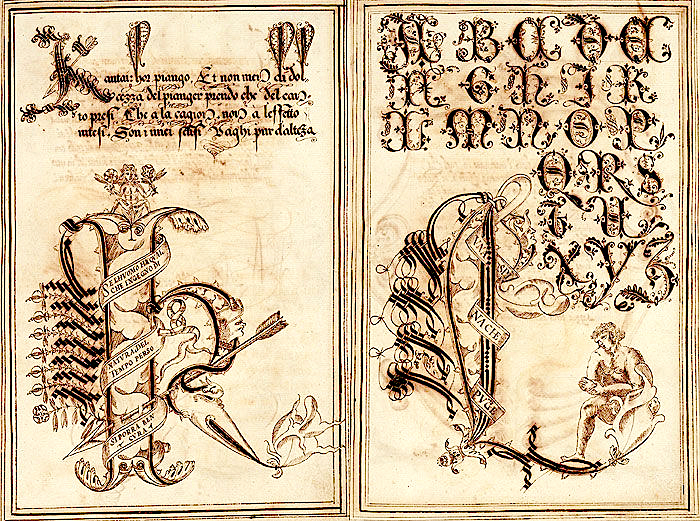 Kantai: hor piango, Et non men di dol
cezza del pianger prendo che del can
to presi. Che a la cagion, non a leffetto
intesi. Son i miei sensi Vaghi pur d'altezza
CHE INGEGNO
NATVRA, DEL
TEMPO PERSO
SI DORRA
A B C D E
F G H I K
L M N O P
Q R S
T U
X Y Z
NACIE
PVRE